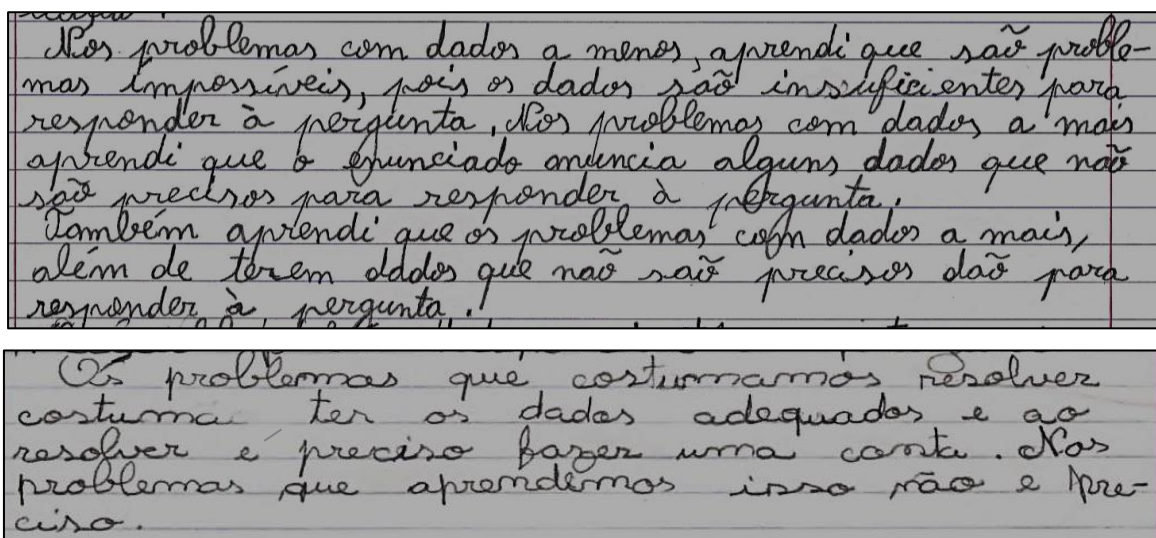 Nos problemas com dados a menos, aprendi que saõ proble-
mas impossíveis, pois os dados saõ insuficientes para
responder à pergunta. Nos problemas com dados a mais
aprendi que o enunciado anuncia alguns dados que naõ
saõ precisos para responder à pergunta.
Também aprendi que os problemas com dados a mais,
além de terem dados que naõ saõ precisos daõ para
responder à pergunta.
Os problemas que costumamos resolver
costuma ter os dados adequados e ao
resolver é preciso fazer uma conta. Nos
problemas que aprendemos isso não e pre-
ciso.